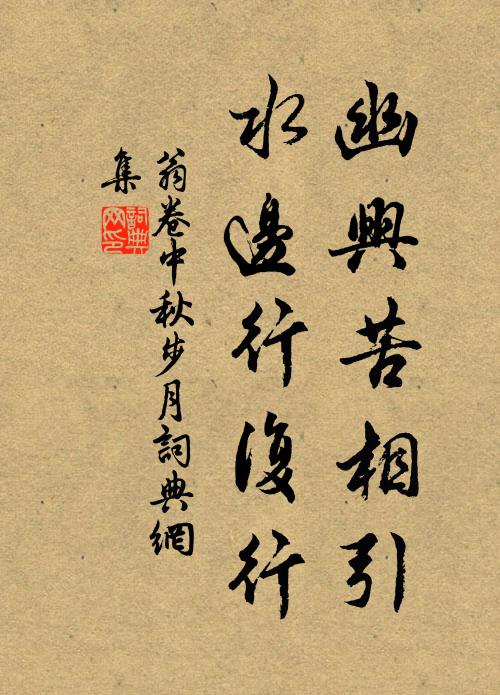 幽興苦相引
水邊行復行
翁卷中秋步月詞典網
集
詞典网印